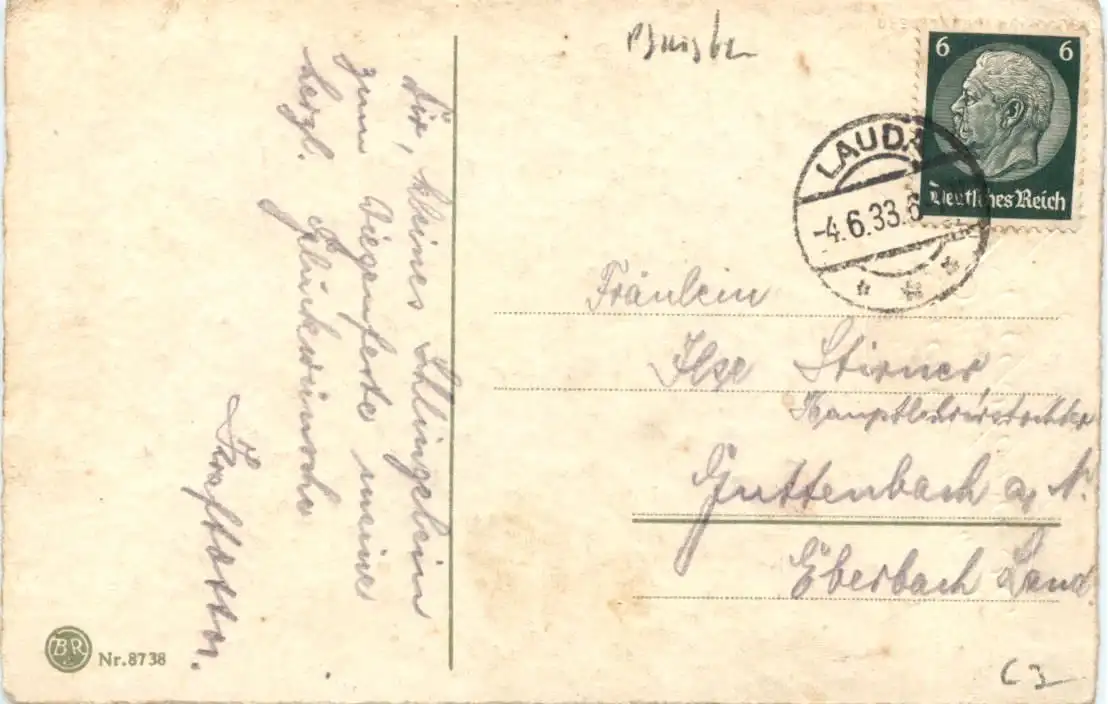 Dir, kleines Schlingelein
zum Wiegenfeste meine
herzl. Glückwünsche
Kraft Otto.
6 6
Deutsches Reich
LAUDA
-4.6.33.6
Fräulein
Ilse Stirner,
Hauptlehrerstochter
Guttenbach a, N.
Eberbach Land
BR
Nr. 8738
C3